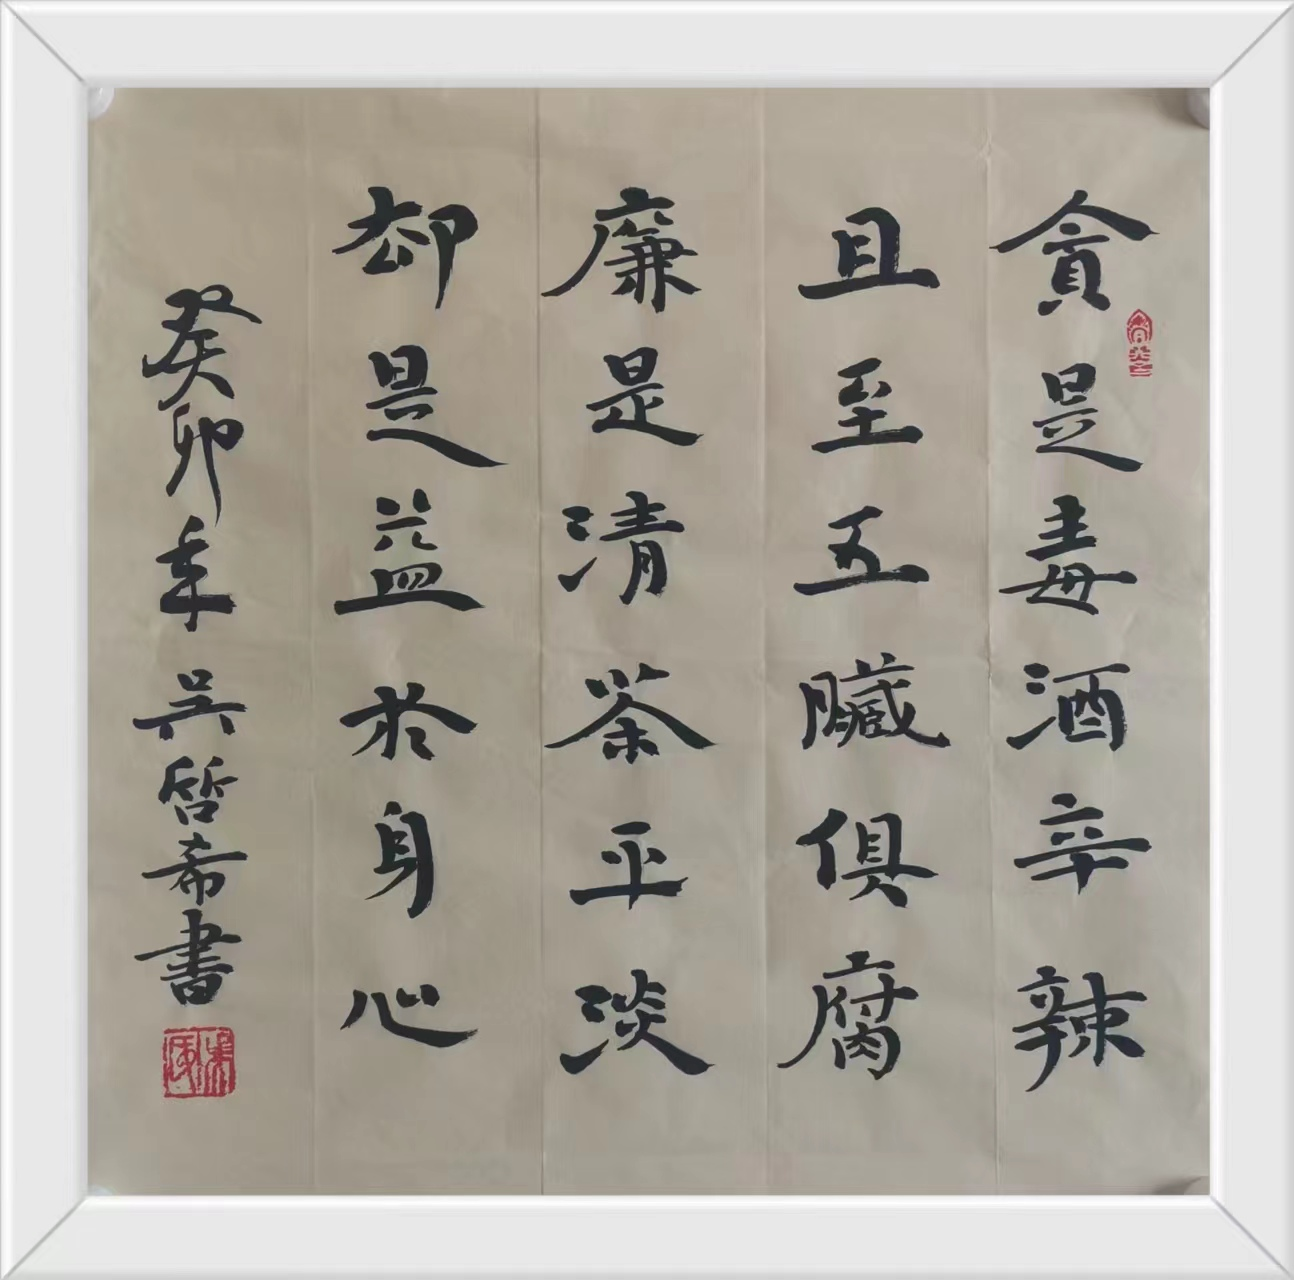 貪是毒酒辛辣
且至五臟俱腐
廉是清茶平淡
却是益於身心
癸卯年吳哲希書